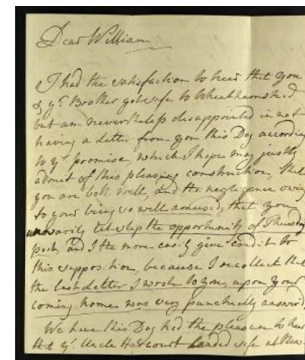 Dear William
I had the satisfaction to hear that you
& yr. Brother got safe to Wheathamsted
but am nevertheless disappointed in not
having a Letter from you this Day according
to yr. promise, which I hope may justly
admit of this pleasing construction, that
you are both well, and the negligence owing
to your being so well amused, that you
unwarily let slip the opportunity of Thursday
post, and I the more easily give credit to
this supposition, because I recollect that
the last Letter I wrote to you, upon your
coming home was very punctually answered
We have this Day had the pleasure to hear
that yr. Uncle Harcourt landed safe at